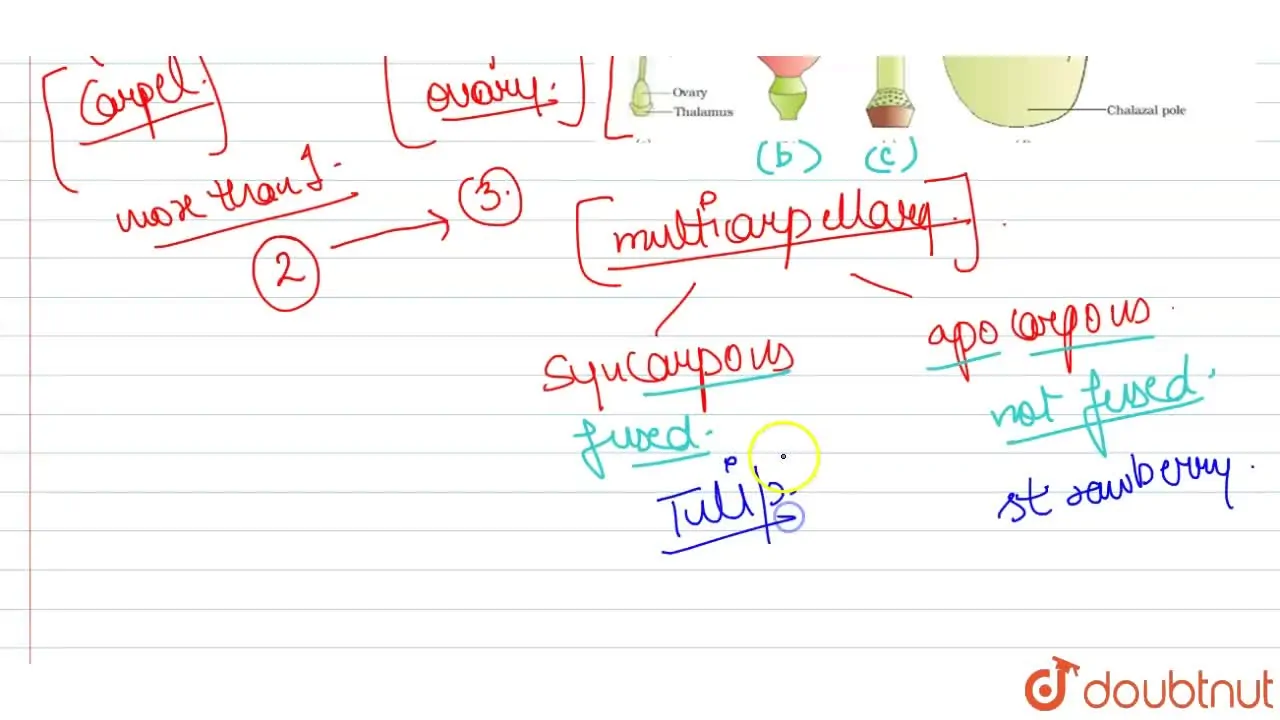 Carpel.
ovary.
Ovary
Thalamus
Chalazal pole
(b) (c)
more than 1.
2
3.
multicarpellary.
Syncarpous
apocarpous
fused.
not fused.
Tulip.
strawberry.
doubtnut